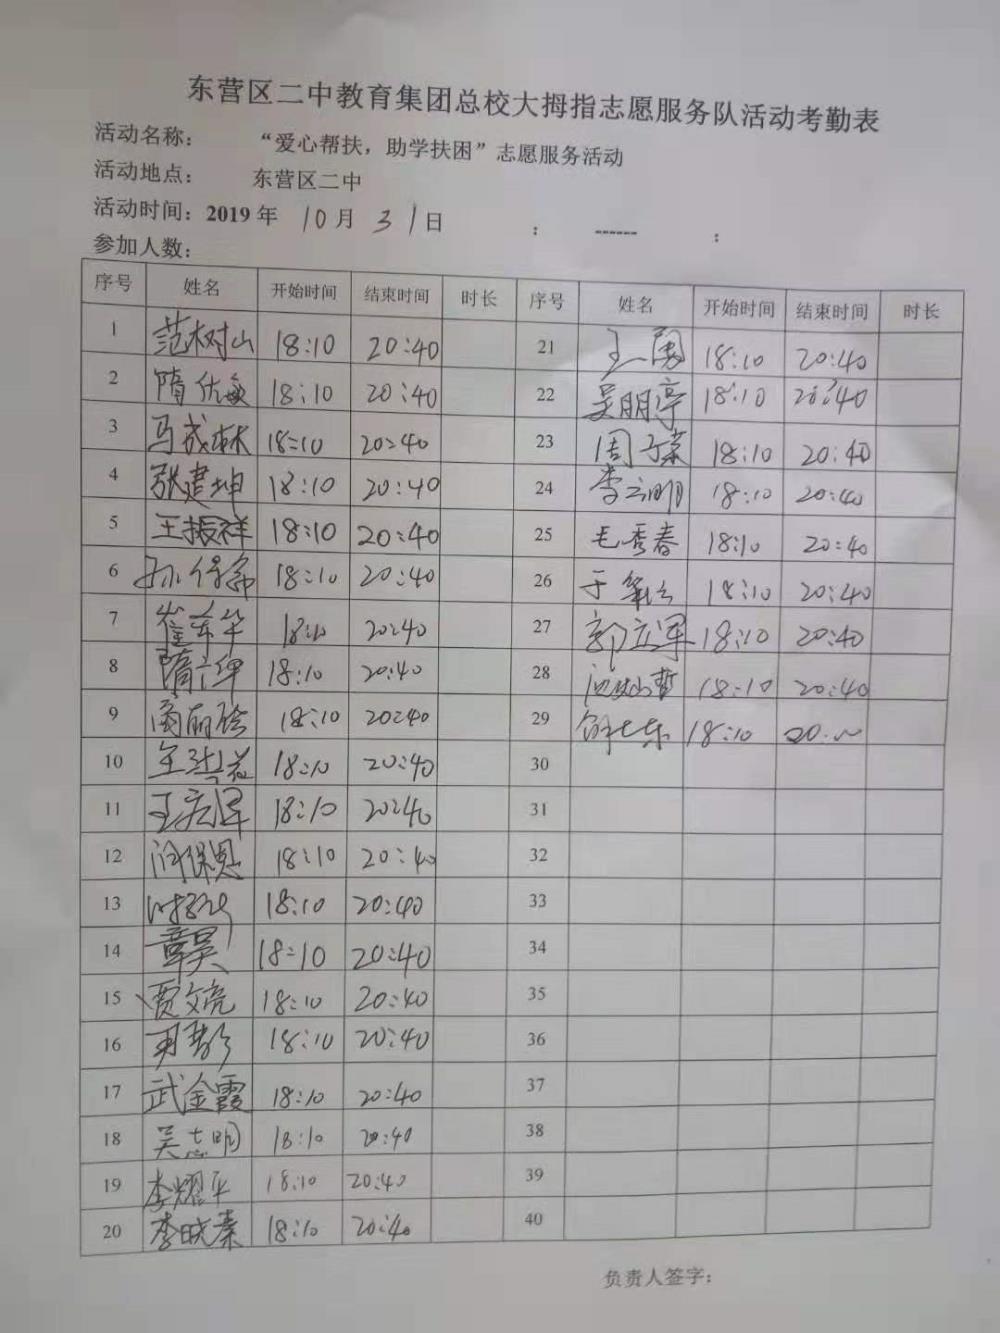 东营区二中教育集团总校大拇指志愿服务队活动考勤表
活动名称： “爱心帮扶，助学扶困”志愿服务活动
活动地点： 东营区二中
活动时间：2019 年 10 月 31 日 : ------ :
参加人数：
序号 姓名 开始时间 结束时间 时长 序号 姓名 开始时间 结束时间 时长
1 范树山 18:10 20:40 21 王勇 18:10 20:40
2 隋 18:10 20:40 22 吴朋亭 18:10 20:40
3 马成林 18:10 20:40 23 周子荣 18:10 20:40
4 张建坤 18:10 20:40 24 李云朋 18:10 20:40
5 王振祥 18:10 20:40 25 毛秀春 18:10 20:40
6 孙 18:10 20:40 26 于 18:10 20:40
7 崔 华 18:10 20:40 27 郭立军 18:10 20:40
8 隋 18:10 20:40 28 18:10 20:40
9 18:10 20:40 29 18:10 20:
10 18:10 20:40 30
11 王 军 18:10 20:40 31
12 保恩 18:10 20:40 32
13 18:10 20:40 33
14 章昊 18:10 20:40 34
15 贾文亮 18:10 20:40 35
16 18:10 20:40 36
17 武金霞 18:10 20:40 37
18 吴志明 18:10 20:40 38
19 李耀平 18:10 20:40 39
20 李晓 18:10 20:40 40
负责人签字：